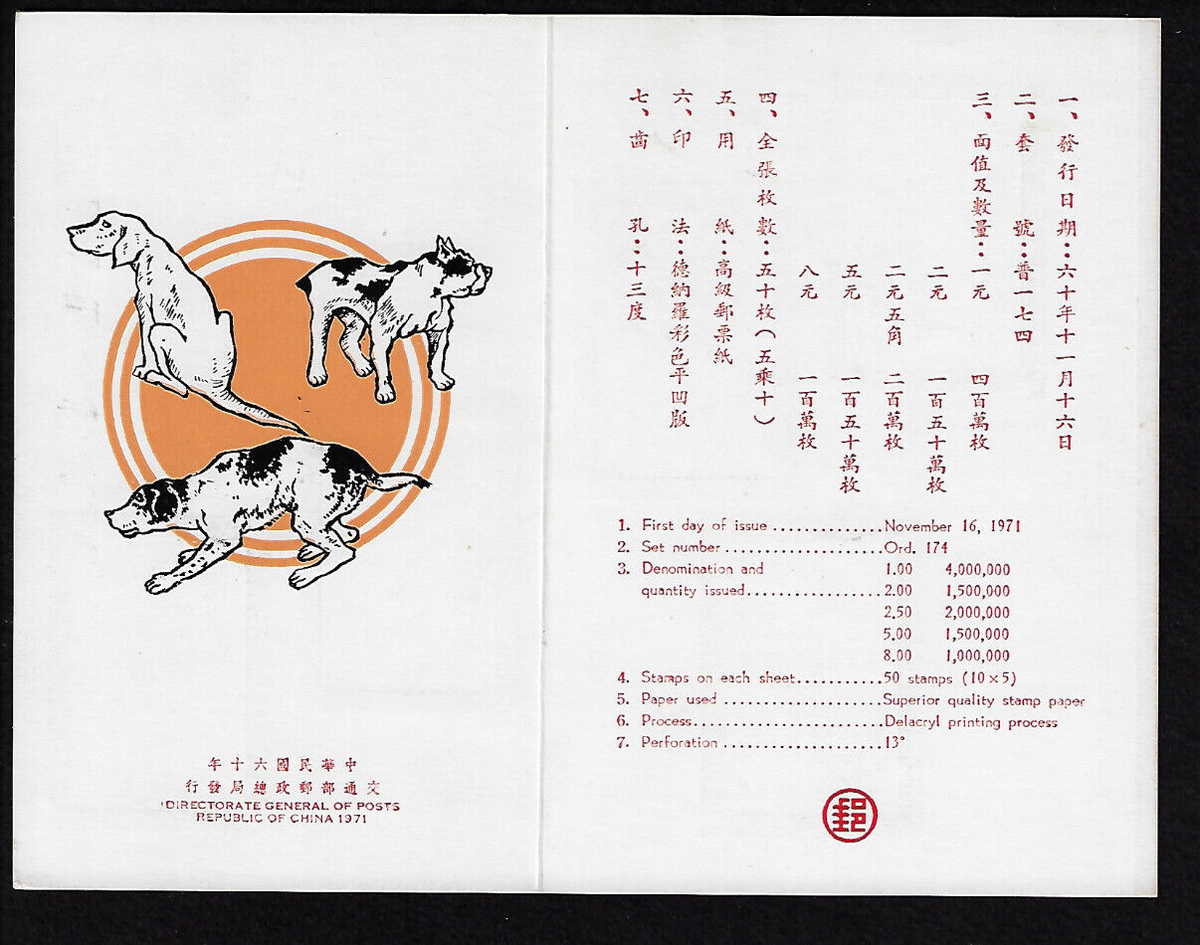 中華民國六十年
交通部郵政總局發行
DIRECTORATE GENERAL OF POSTS
REPUBLIC OF CHINA 1971
一、發行日期：六十年十一月十六日
二、套號：普一七四
三、面值及數量：一元 四百萬枚
二元 一百五十萬枚
二元五角 二百萬枚
五元 一百五十萬枚
八元 一百萬枚
四、全張枚數：五十枚（五乘十）
五、用紙：高級郵票紙
六、印法：德納羅彩色平凹版
七、齒孔：十三度
1. First day of issue .............November 16, 1971
2. Set number....................Ord. 174
3. Denomination and 1.00 4,000,000
quantity issued.................2.00 1,500,000
2.50 2,000,000
5.00 1,500,000
8.00 1,000,000
4. Stamps on each sheet...........50 stamps (10×5)
5. Paper used ....................Superior quality stamp paper
6. Process........................Delacryl printing process
7. Perforation ....................13°
郵